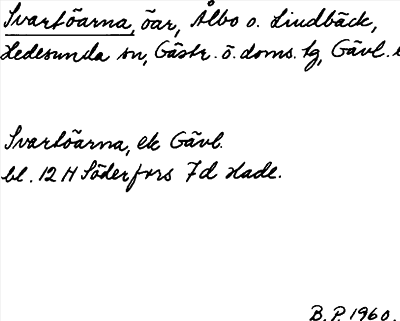 Svartöarna, öar, Ålbo o. Lindbäck,
Hedesunda sn, Gästr. ö. doms. tg, Gävl.
Svartöarna, ek Gävl.
bl. 12 H Söderfors 7d Hade.
B.P. 1960.